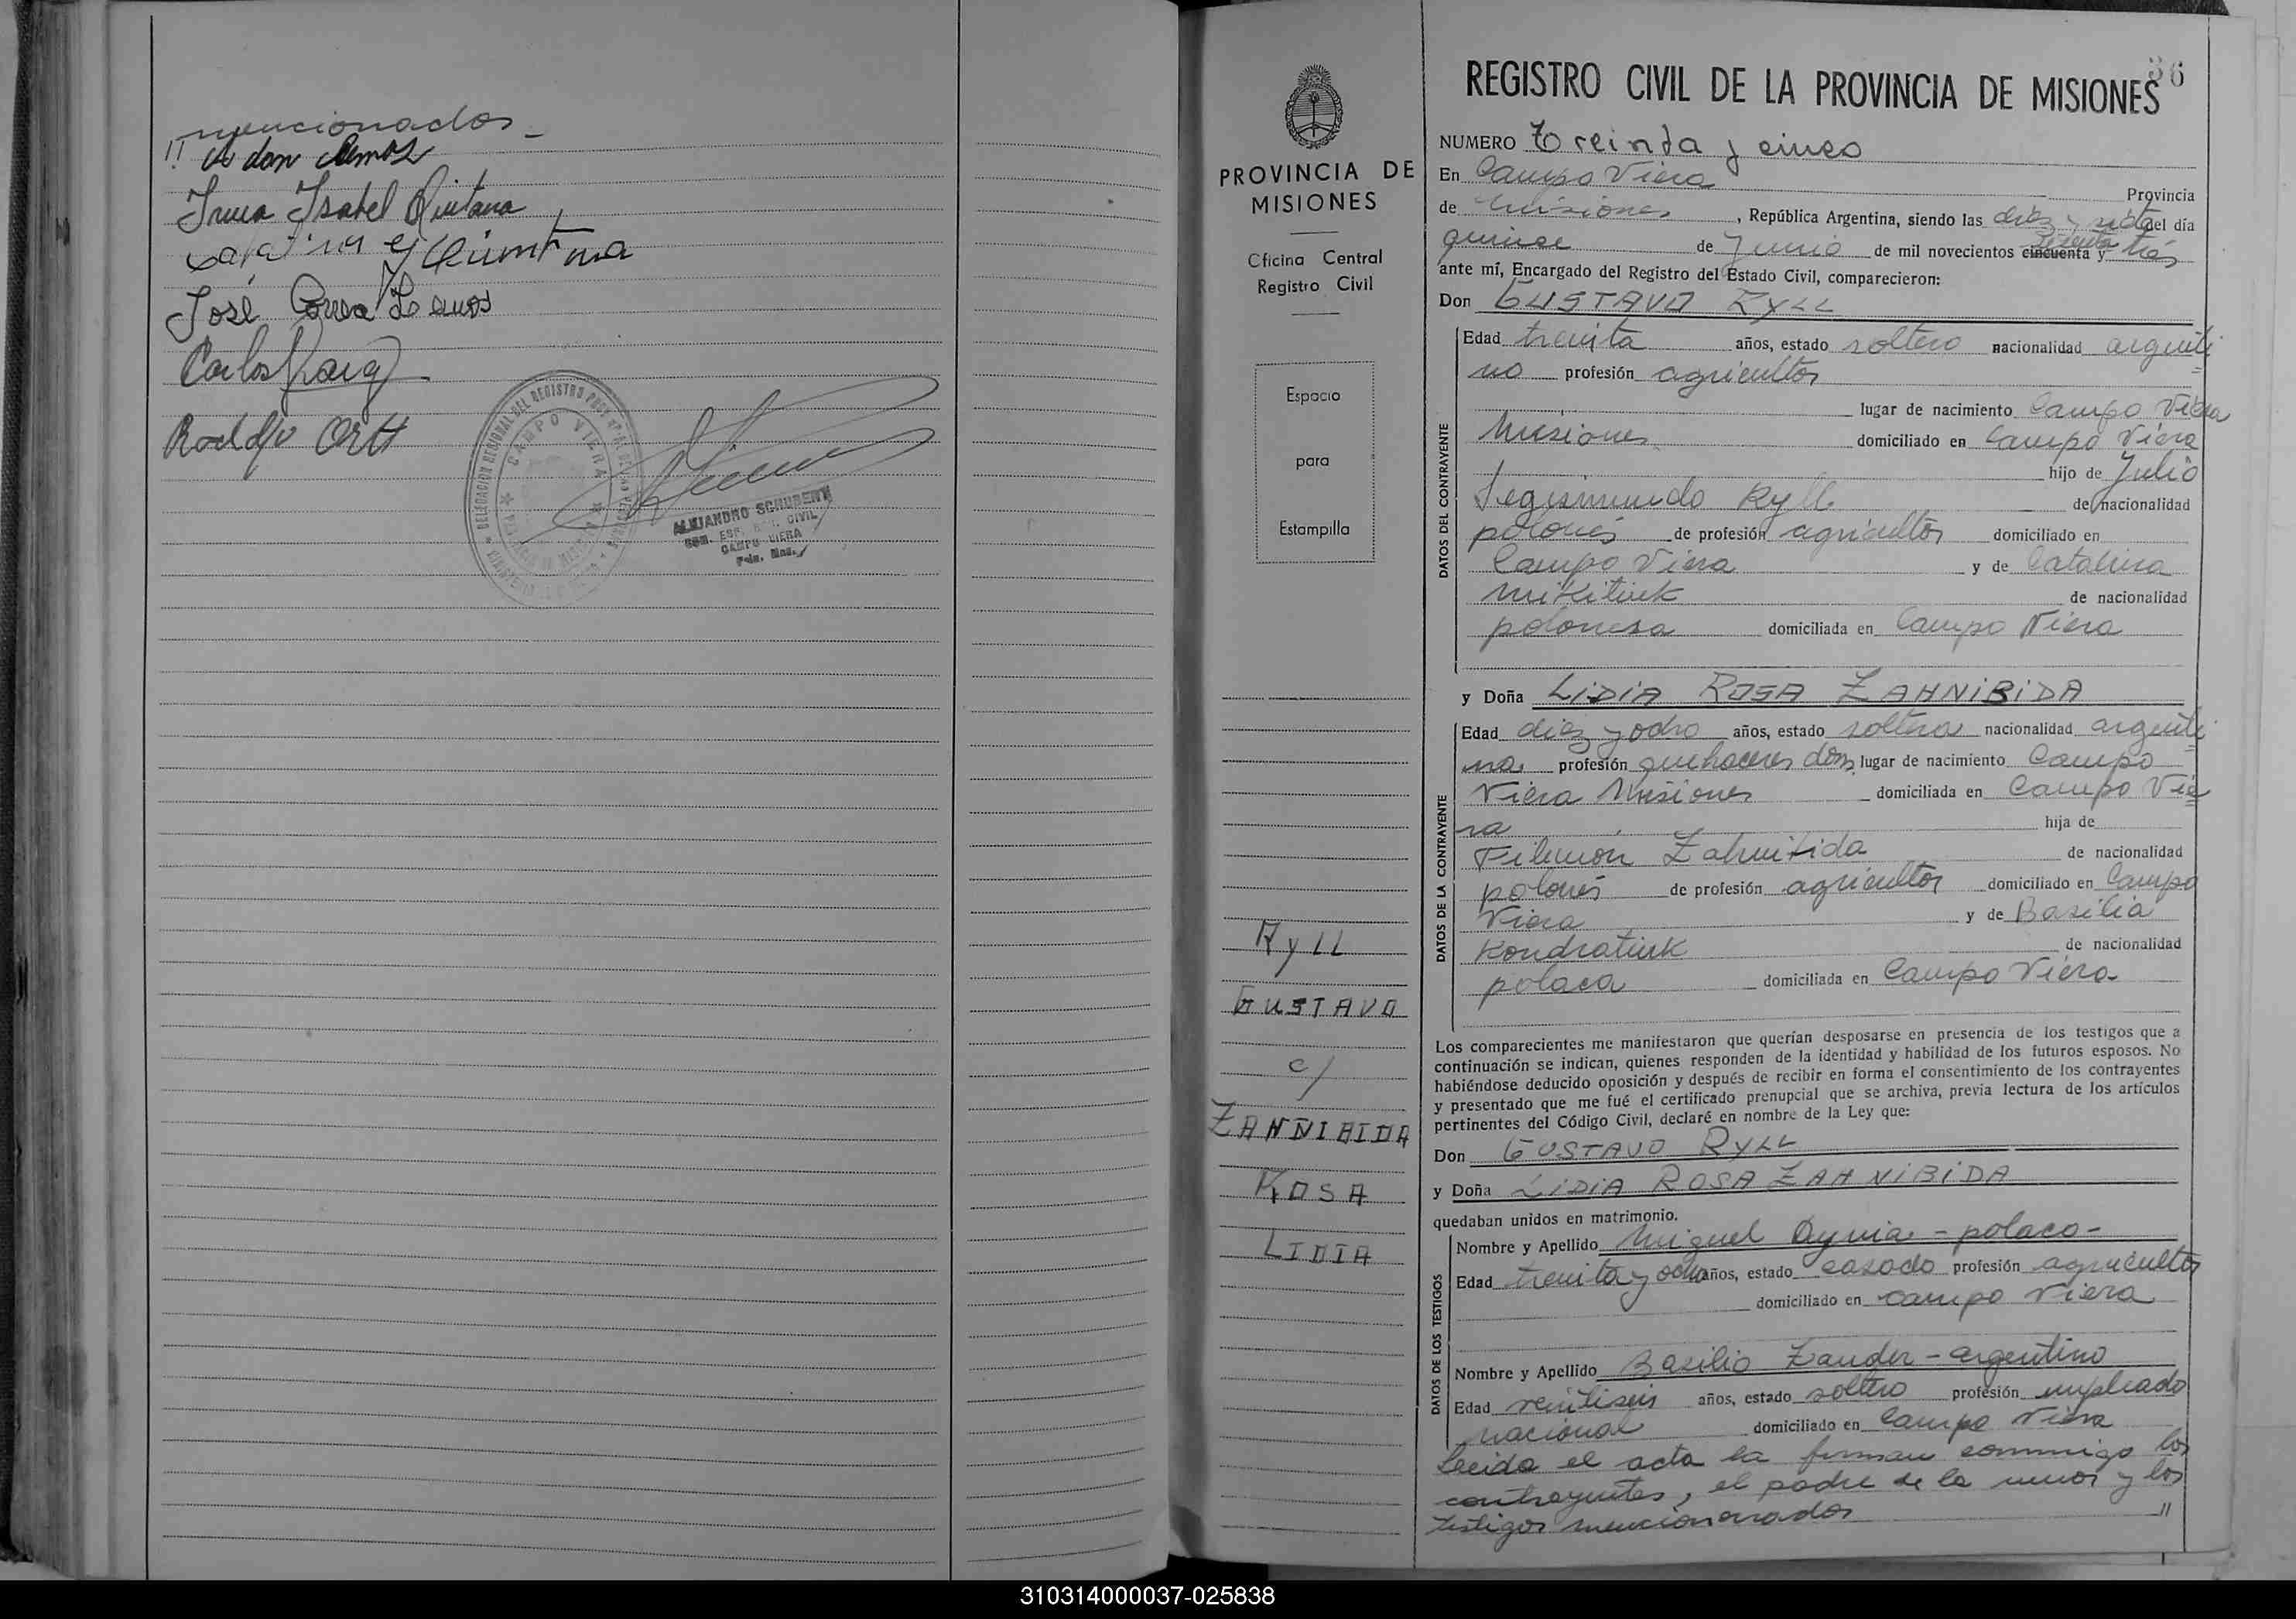 mencionados.-
Irma Isabel Quintana
Quintana
José Correa Lemos
Carlos
Rodolfo Ortt
DELEGACION REGIONAL DEL REGISTRO
CAMPO VIERA
ALEJANDRO SCHUBERT
CIVIL
CAMPO VIERA
Mnes.
PROVINCIA DE
MISIONES
Oficina Central
Registro Civil
Espacio
para
Estampilla
Ryll
GUSTAVO
c/
ZAHNIBIDA
ROSA
LIDIA
36
REGISTRO CIVIL DE LA PROVINCIA DE MISIONES
NUMERO Treinta y cinco
En Campo Viera Provincia
de Misiones, República Argentina, siendo las diez y siete del día
quince de Junio de mil novecientos cincuenta y sesenta tres
ante mí, Encargado del Registro del Estado Civil, comparecieron:
Don GUSTAVO RYLL
DATOS DEL CONTRAYENTE
Edad treinta años, estado soltero nacionalidad argenti
no profesión agricultor
lugar de nacimiento Campo Viera
Misiones domiciliado en Campo Viera
hijo de Julio
Segismundo Ryll de nacionalidad
polonés de profesión agricultor domiciliado en
Campo Viera y de Catalina
Mikitiuk de nacionalidad
polonesa domiciliada en Campo Viera
y Doña LIDIA ROSA ZAHNIBIDA
DATOS DE LA CONTRAYENTE
Edad diez y ocho años, estado soltera nacionalidad argenti
na profesión quehaceres dom. lugar de nacimiento Campo
Viera Misiones domiciliada en Campo Vie
ra hija de
Filimón Zahnibida de nacionalidad
polonés de profesión agricultor domiciliado en Campo
Viera y de Basilia
Kondratiuk de nacionalidad
polaca domiciliada en Campo Viera
Los comparecientes me manifestaron que querían desposarse en presencia de los testigos que a
continuación se indican, quienes responden de la identidad y habilidad de los futuros esposos. No
habiéndose deducido oposición y después de recibir en forma el consentimiento de los contrayentes
y presentado que me fué el certificado prenupcial que se archiva, previa lectura de los artículos
pertinentes del Código Civil, declaré en nombre de la Ley que:
Don GUSTAVO RYLL
y Doña LIDIA ROSA ZAHNIBIDA
quedaban unidos en matrimonio.
DATOS DE LOS TESTIGOS
Nombre y Apellido Miguel - polaco -
Edad treinta y ocho años, estado casado profesión agricultor
domiciliado en campo Viera
Nombre y Apellido Basilio Zander - argentino
Edad veintiseis años, estado soltero profesión empleado
nacional domiciliado en Campo Viera
Leida el acta la firman conmigo los
contrayentes, el padre de la menor y los
testigos mencionados //
310314000037-025838